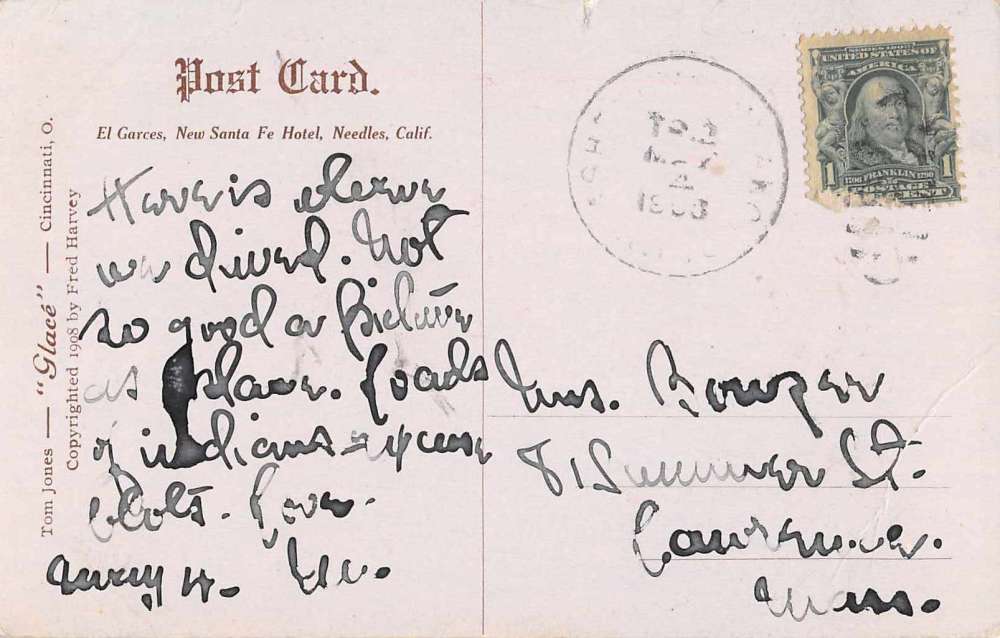 Post Card.
El Garces, New Santa Fe Hotel, Needles, Calif.
Tom Jones — "Glacé" — Cincinnati, O.
Copyrighted 1908 by Fred Harvey
Here is where
we dined. Not
so good a picture
as place. Loads
of indians - excuse
blots. Love.
SERIES 1902
UNITED STATES OF
AMERICA
1 1
1706 FRANKLIN 1790
POSTAGE
ONE CENT
OCT
4
1908
Mrs. Bowzer
81 Summer St.
Lawrence.
Mass.